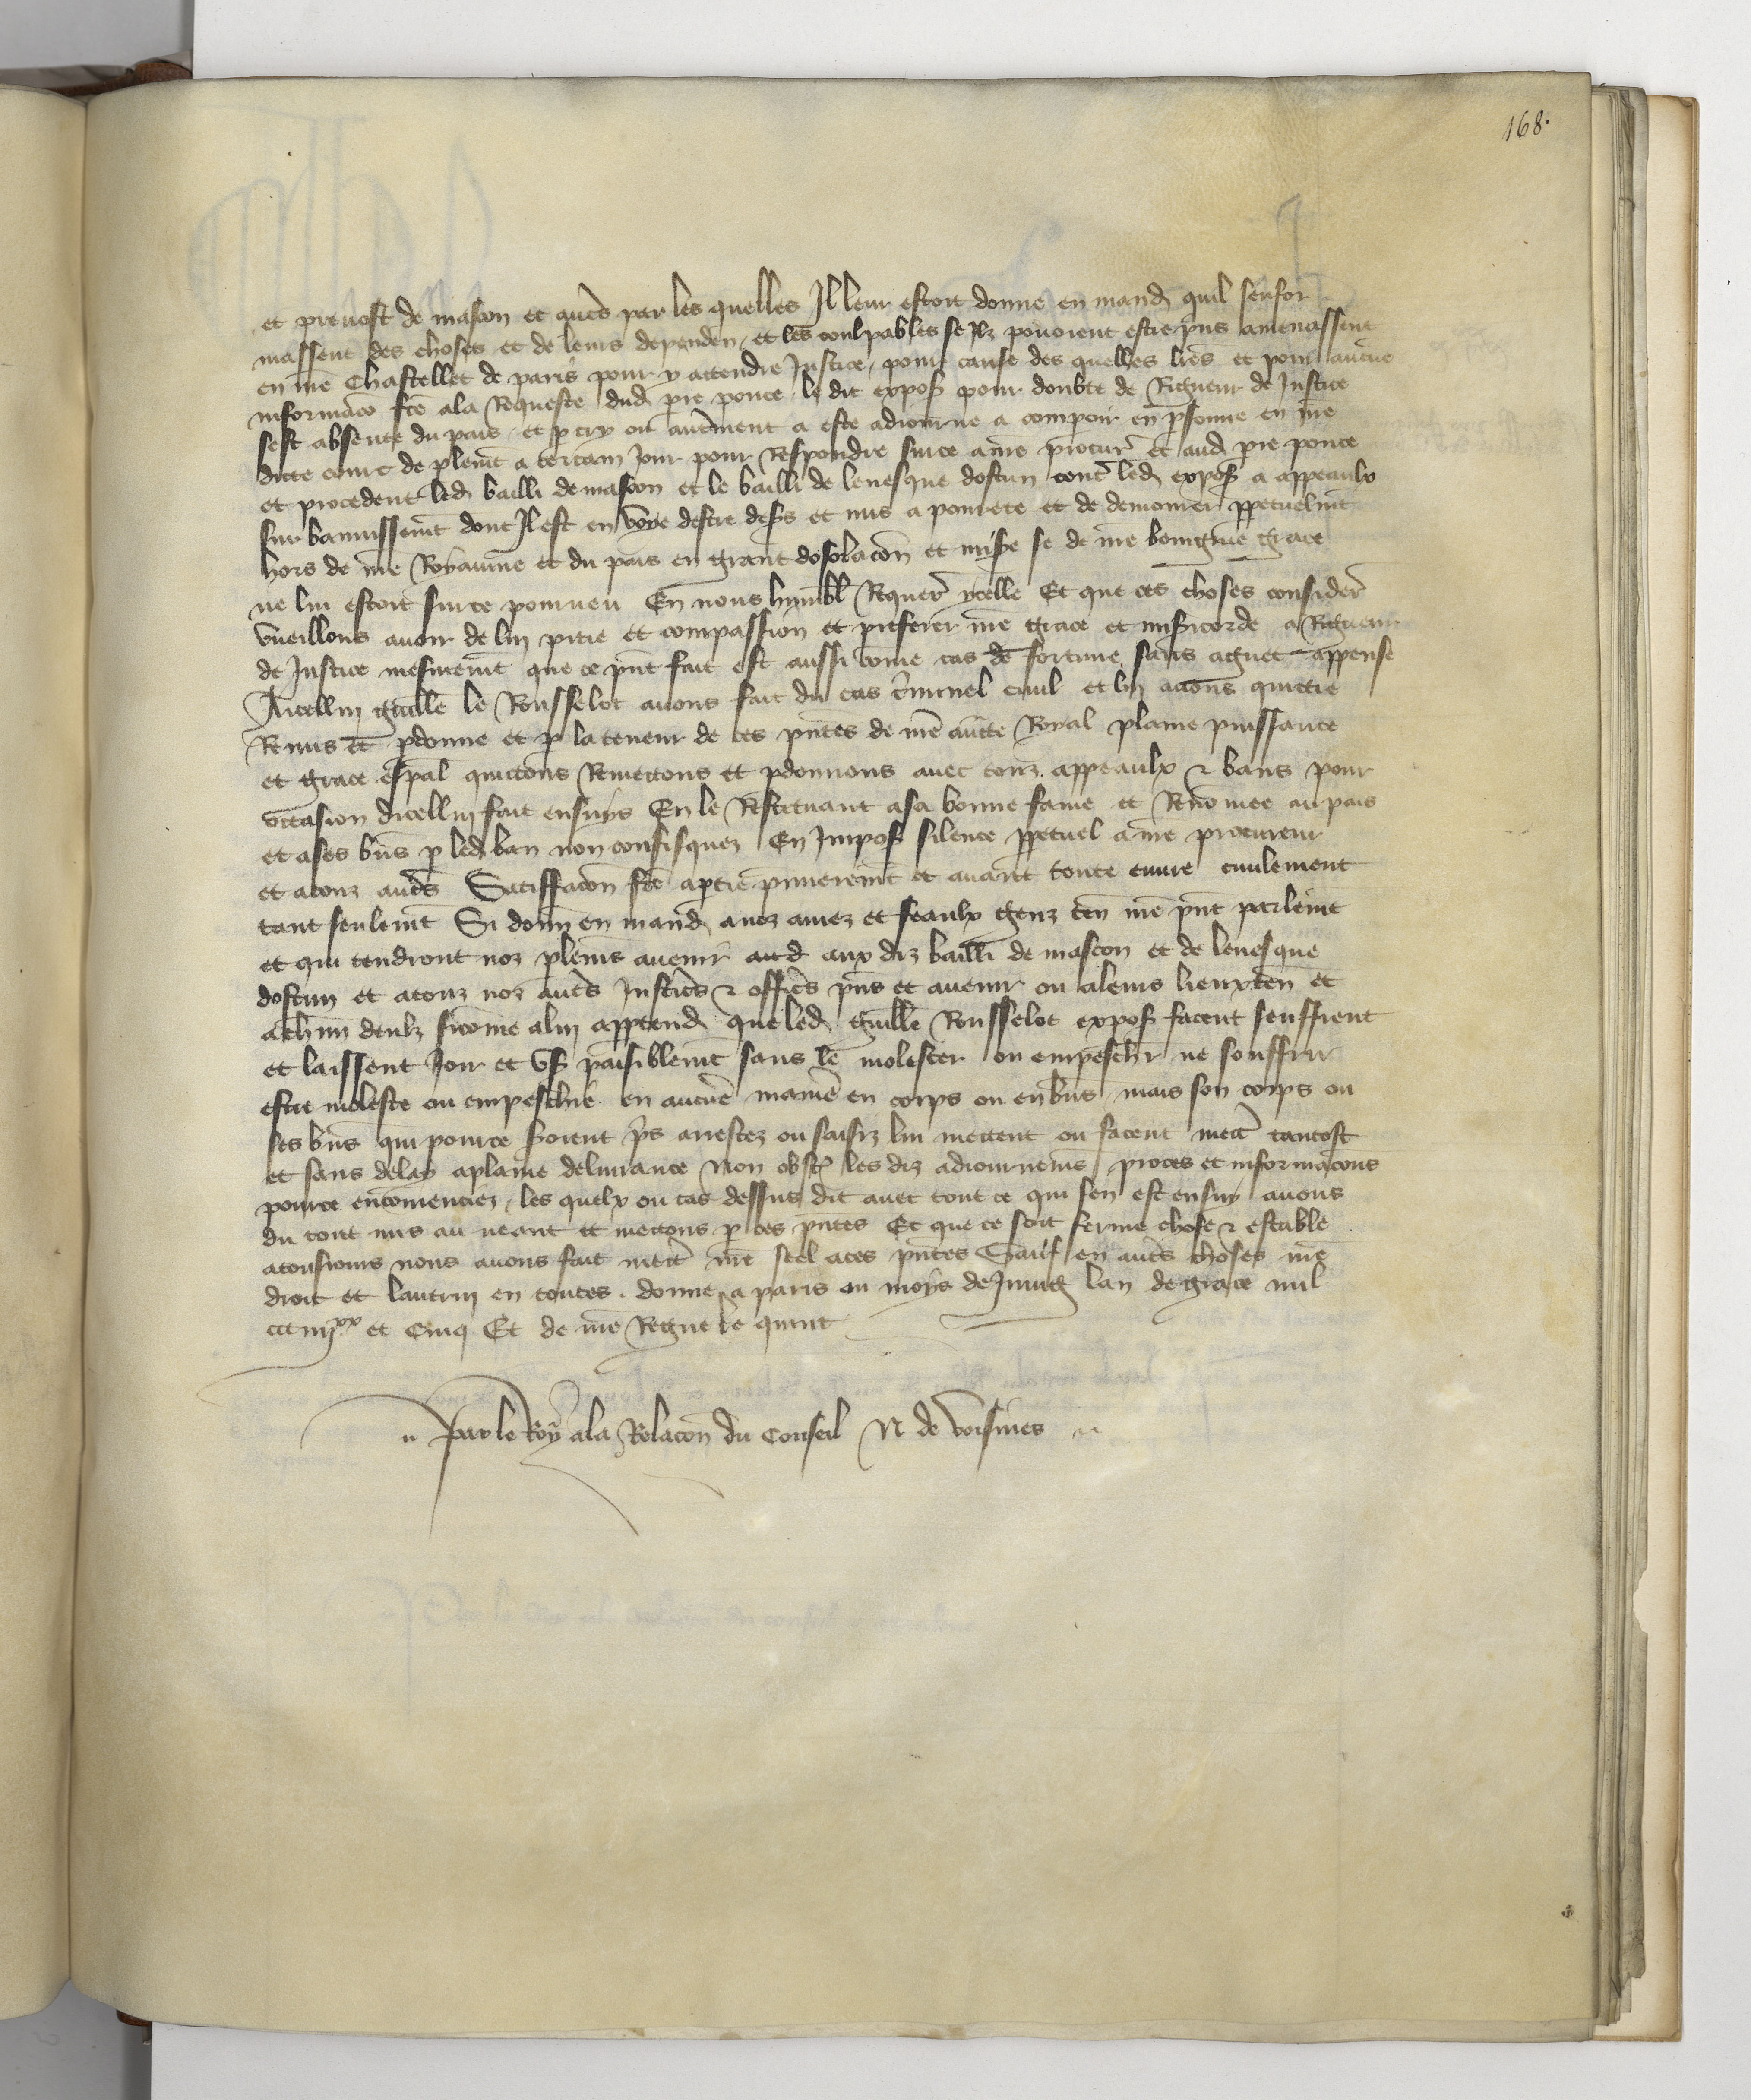 168.
et prevost de mascon et autres par les quelles Il leur estoit donne en mand quil senfor
massent des choses et de leurs dependen et les coulpables se Ilz povoient estre prins amenassent
en nre Chastellet de paris pour y attendre Justice, pour cause des quelles lres et pour aucune
informacō fcē ala Requeste dud pre ponce le dit expos pour doubte de Rigueur de Justice
sest absente du pais et p eux ou autrement a este adiourne a comparoir en psonne en nre
dicte court de plemt a certain Jour pour Respondre surce a nre procur et aud pre ponce
et procedent led bailli de mascon et le bailli de levesque dostun contr led expos a appeaulx
sur bannissemt dont Il est en voye destre desers et mis a povrete et de demourer ppetuelmt
hors de nre Royaume et du pais en grant desolacon et mise se de nre benigne grace
ne lui estoit surce pourveu En nous humbl Requer ycelle Et que ces choses consider
vueillons avoir de luy pitie et compassion et preferer nre grace et misericorde a Rigueur
de Justice mesmemt que ce pnt fait est aussi come cas de fortune sans aguet appense
Aicelluy guille le Rousselot avons fait du cas criminel civil et luy avons quictie
Remis et pdonne et p la teneur de ces pntes de nre auctte Royal plaine puissance
et grace espal quictons Remectons et pdonnons avec touz appeaulx & bans pour
occasion dicelluy fait ensuys En le Restituant asa bonne fame et Renomee au pais
et ases bns p led ban non confisquez En Impos silence ppetuel a nre procureur
et atouz autrs Satisffacon fcē aptie pmieremt et avant toute euvre civilement
tant seulemt Si donn en mand anoz amez et feaulx genz ten nre pnt parlemt
et qui tendront noz plems avenir aud aux diz bailli de mascon et de levesque
dostun et atouz noz autrs Justicrs & officrs pns et avenir ou aleurs lieuxten et
achun deulz sicome aluy apptend que led guille Rousselot expos facent seuffrent
et laissent Joir et Us paisiblemt sans le molester ou empeschr ne souffrir
estre moleste ou empeschie en aucune manie en corps ou en bns mais son corps ou
ses bns qui pource soient ps arrestez ou saisiz lui mectent ou facent mectr tantost
et sans delay aplaine delivrance Non obst les diz adiournems proces et informacons
pource encomenciez, les quelx ou cas dessus dit avec tout ce qui sen est ensuy avons
du tout mis au neant et mectons p ces pntes Et que ce soit ferme chose & estable
atousiours nous avons fait mectr nre seel aces pntes Sauf en autrs choses nre
droit et lautruy en toutes. donne a paris ou moys de Juing lan de grace mil
ccc iiijxx et Cinq Et de nre Regne le quint
Par le Roy ala Relacon du Conseil N de voisines